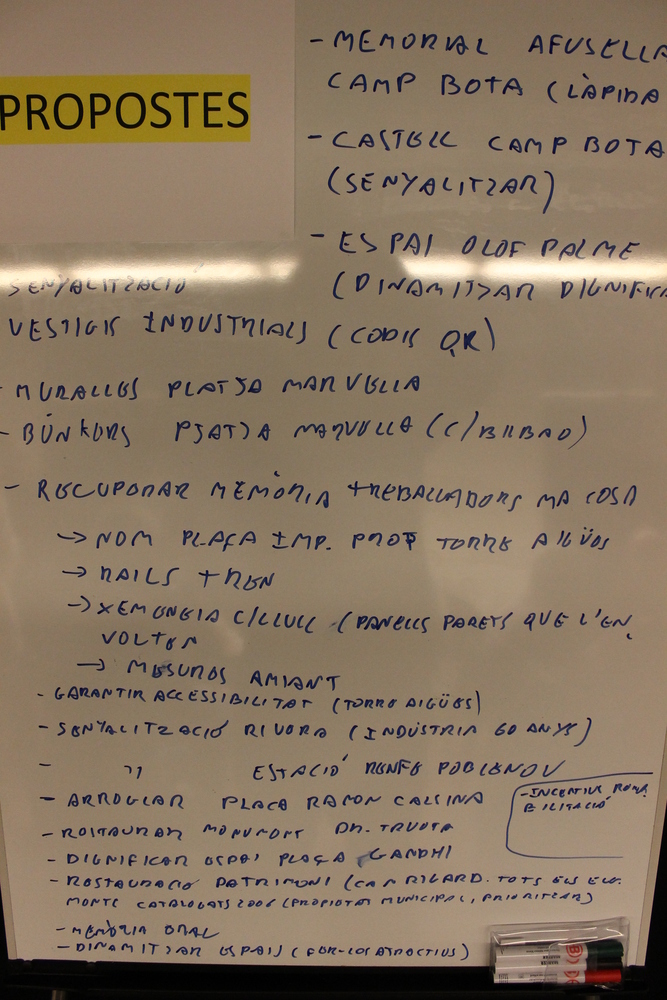 PROPOSTES
- MEMORIAL AFUSELLA
CAMP BOTA (LÀPIDA
- CASTELL CAMP BOTA
(SENYALITZAR)
- ESPAI OLOF PALME
(DINAMITZAR DIGNIFICA
SENYALITZACIÓ
VESTIGIS INDUSTRIALS (CODIS QR)
- MURALLES PLATJA MARVELLA
- BÚNKERS PLATJA MARVELLA (C/BILBAO)
- RECUPERAR MEMÒRIA TREBALLADORS MA COSA
→ NOM PLAÇA IMP. PROP TORRE AIGÜES
→ RAILS TREN
→ XEMENEIA C/LLULL (PANELLS PARETS QUE L'EN.
VOLTEN
→ MESURES AMIANT
- GARANTIR ACCESSIBILITAT (TORRE AIGÜES)
- SENYALITZACIÓ RIVERA (INDÚSTRIA 60 ANYS)
- " ESTACIÓ RENFE POBLENOU
- ARREGLAR PLACA RAMON CALSINA
- INCENTIUS REHA
BILITACIÓ
- RESTAURAR MONUMENT DR. TRUETA
- DIGNIFICAR ESPAI PLAÇA GANDHI
- RESTAURACIÓ PATRIMONI (CAN RICARD. TOTS ELS ELE.
MENTS CATALOGATS 2006 (PROPIETAT MUNICIPAL, PRIORITZAR)
- MEMÒRIA ORAL
- DINAMITZAR ESPAIS (FER-LOS ATRACTIUS)